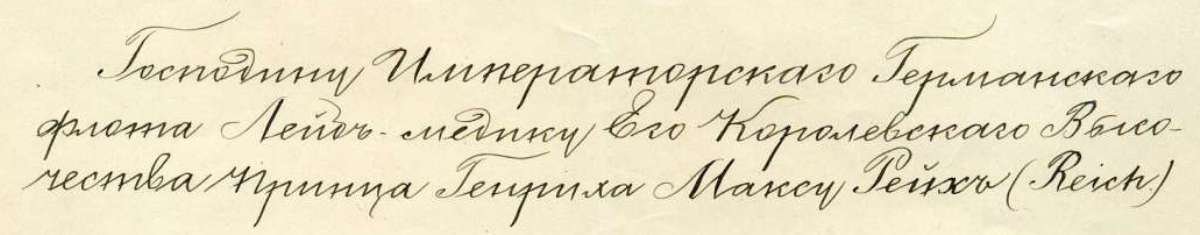 Господину Императорскаго Германскаго
флота Лейбъ-медику Его Королевскаго Высо-
чества Принца Генриха Максу Рейхъ (Reich.)